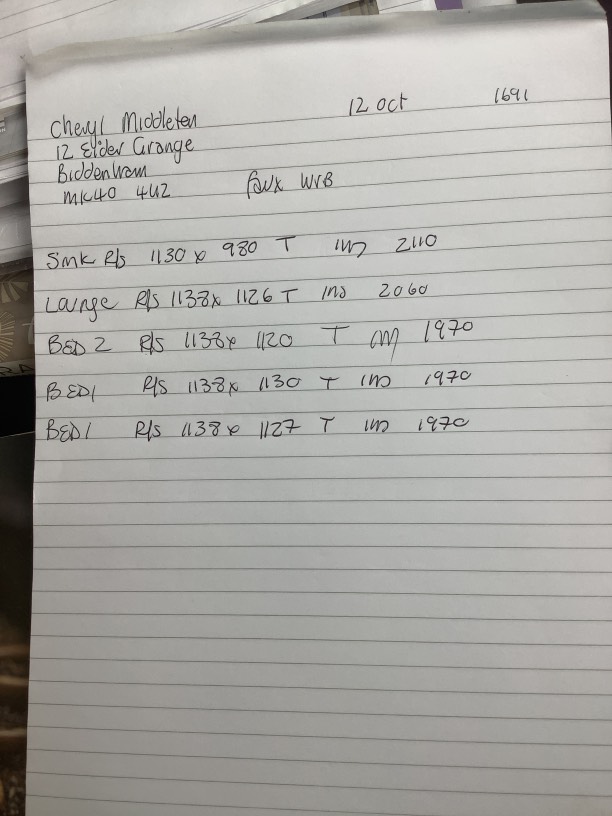 12 Oct 1691
Cheryl Middleten
12 Elder Grange
Biddenham
MK40 4UZ faux WVB
Smk R/s 1130 x 980 T 2110
Lounge R/s 1138 x 1126 T 2060
BED 2 R/s 1138 x 1120 T 1970
BED1 R/s 1138 x 1130 T 1970
BED1 R/s 1138 x 1127 T 1970